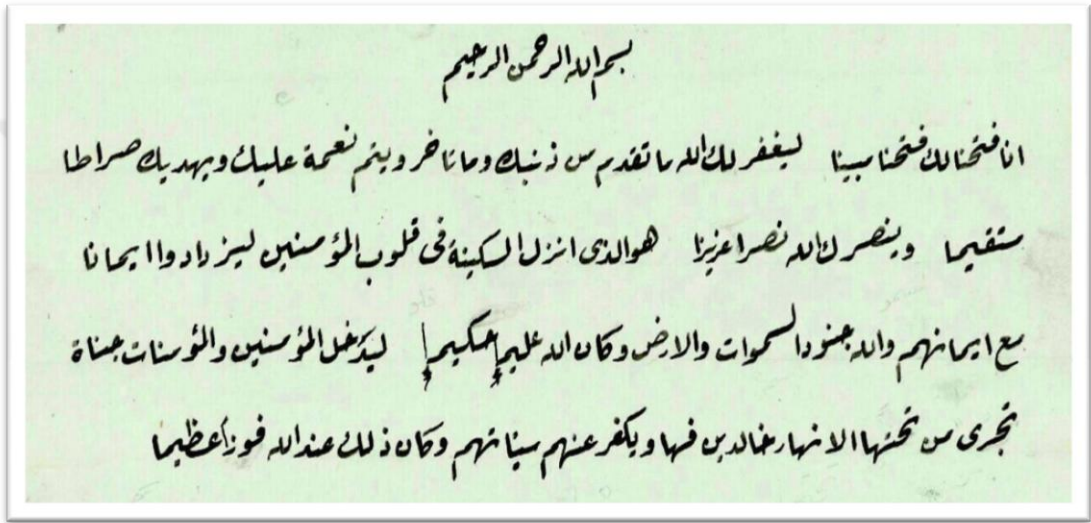 بسم الله الرحمن الرحيم
انا فتحنا لك فتحنا مبينا ليغفر لك الله ما تقدم من ذنبك وما تاخر ويتم نعمة عليك ويهديك صراطا
ستقيما وينصرك الله نصرا عزيزا هو الذى انزل السكينة فى قلوب المؤمنين ليزدادوا ايمانا
مع ايمانهم والله جنود السموات والارض وكان الله عليما حكيما ليدخل المؤمنين والمؤمنات جناة
تجرى من تحتها الانهار خالدين فيها ويكفر عنهم سياتهم وكان ذلك عند الله فوزا عظيما